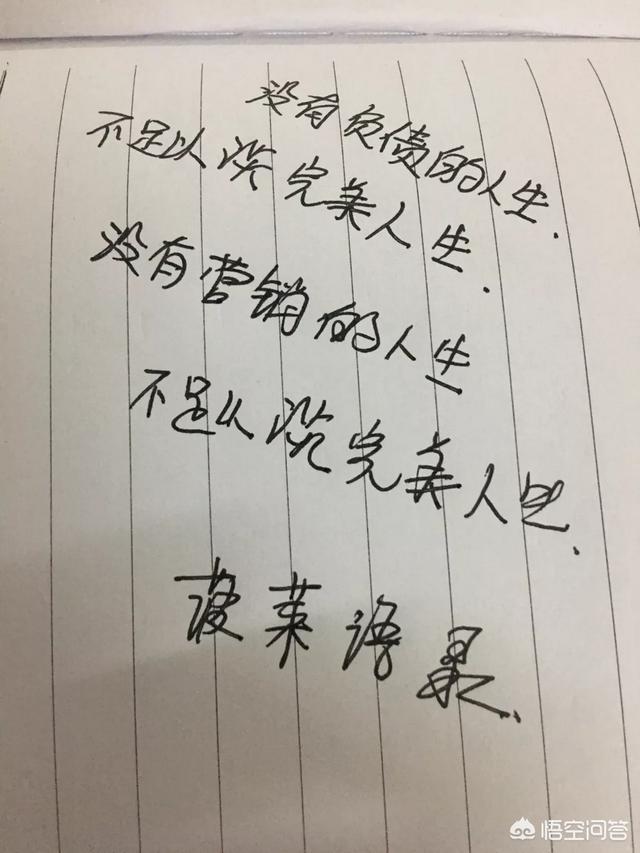 没有负债的人生.
不足以谈完美人生.
没有营销的人生
不足以谈完美人生.
菠莱语录.
悟空问答